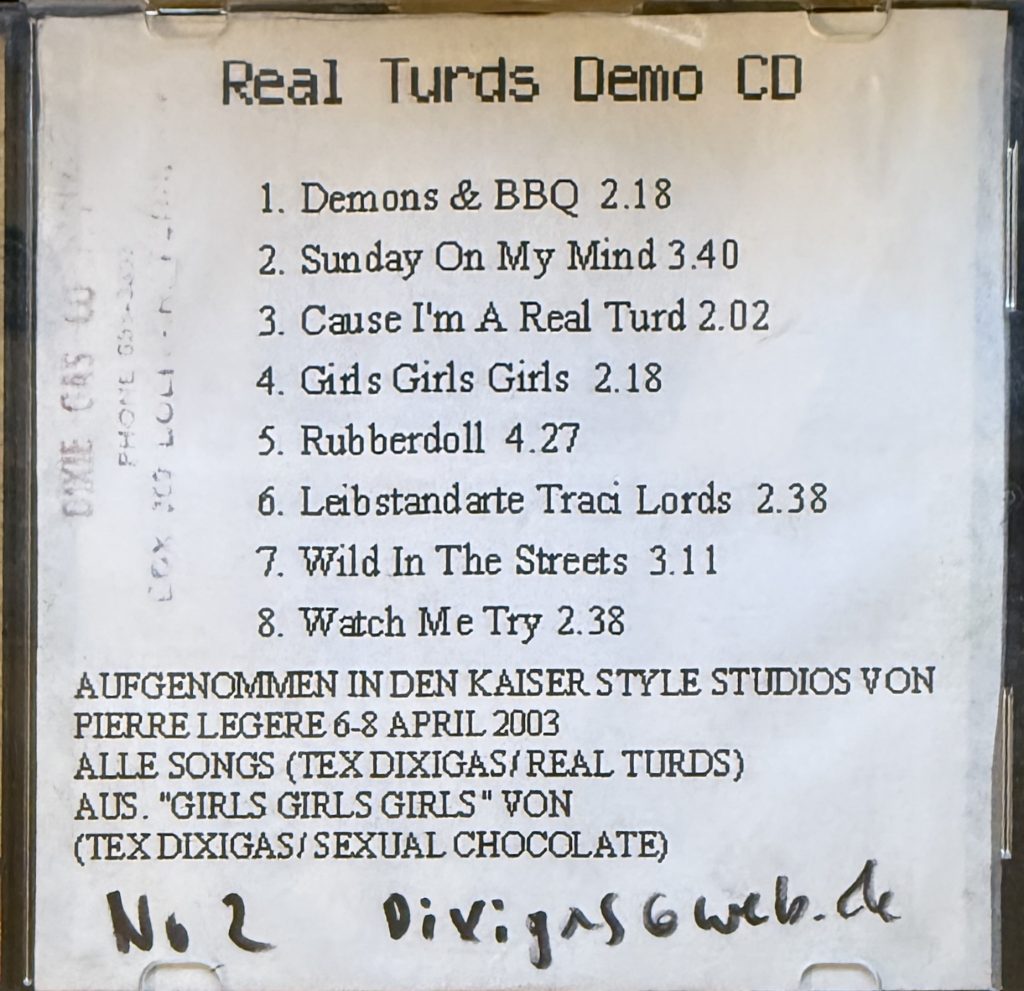 Real Turds Demo CD
1. Demons & BBQ 2.18
2. Sunday On My Mind 3.40
3. Cause I'm A Real Turd 2.02
4. Girls Girls Girls 2.18
5. Rubberdoll 4.27
6. Leibstandarte Traci Lords 2.38
7. Wild In The Streets 3.11
8. Watch Me Try 2.38
AUFGENOMMEN IN DEN KAISER STYLE STUDIOS VON
PIERRE LEGERE 6-8 APRIL 2003
ALLE SONGS (TEX DIXIGAS/ REAL TURDS)
AUS. "GIRLS GIRLS GIRLS" VON
(TEX DIXIGAS/ SEXUAL CHOCOLATE)
No 2 Dixigas@web.de
DIXIE GAS CO
PHONE